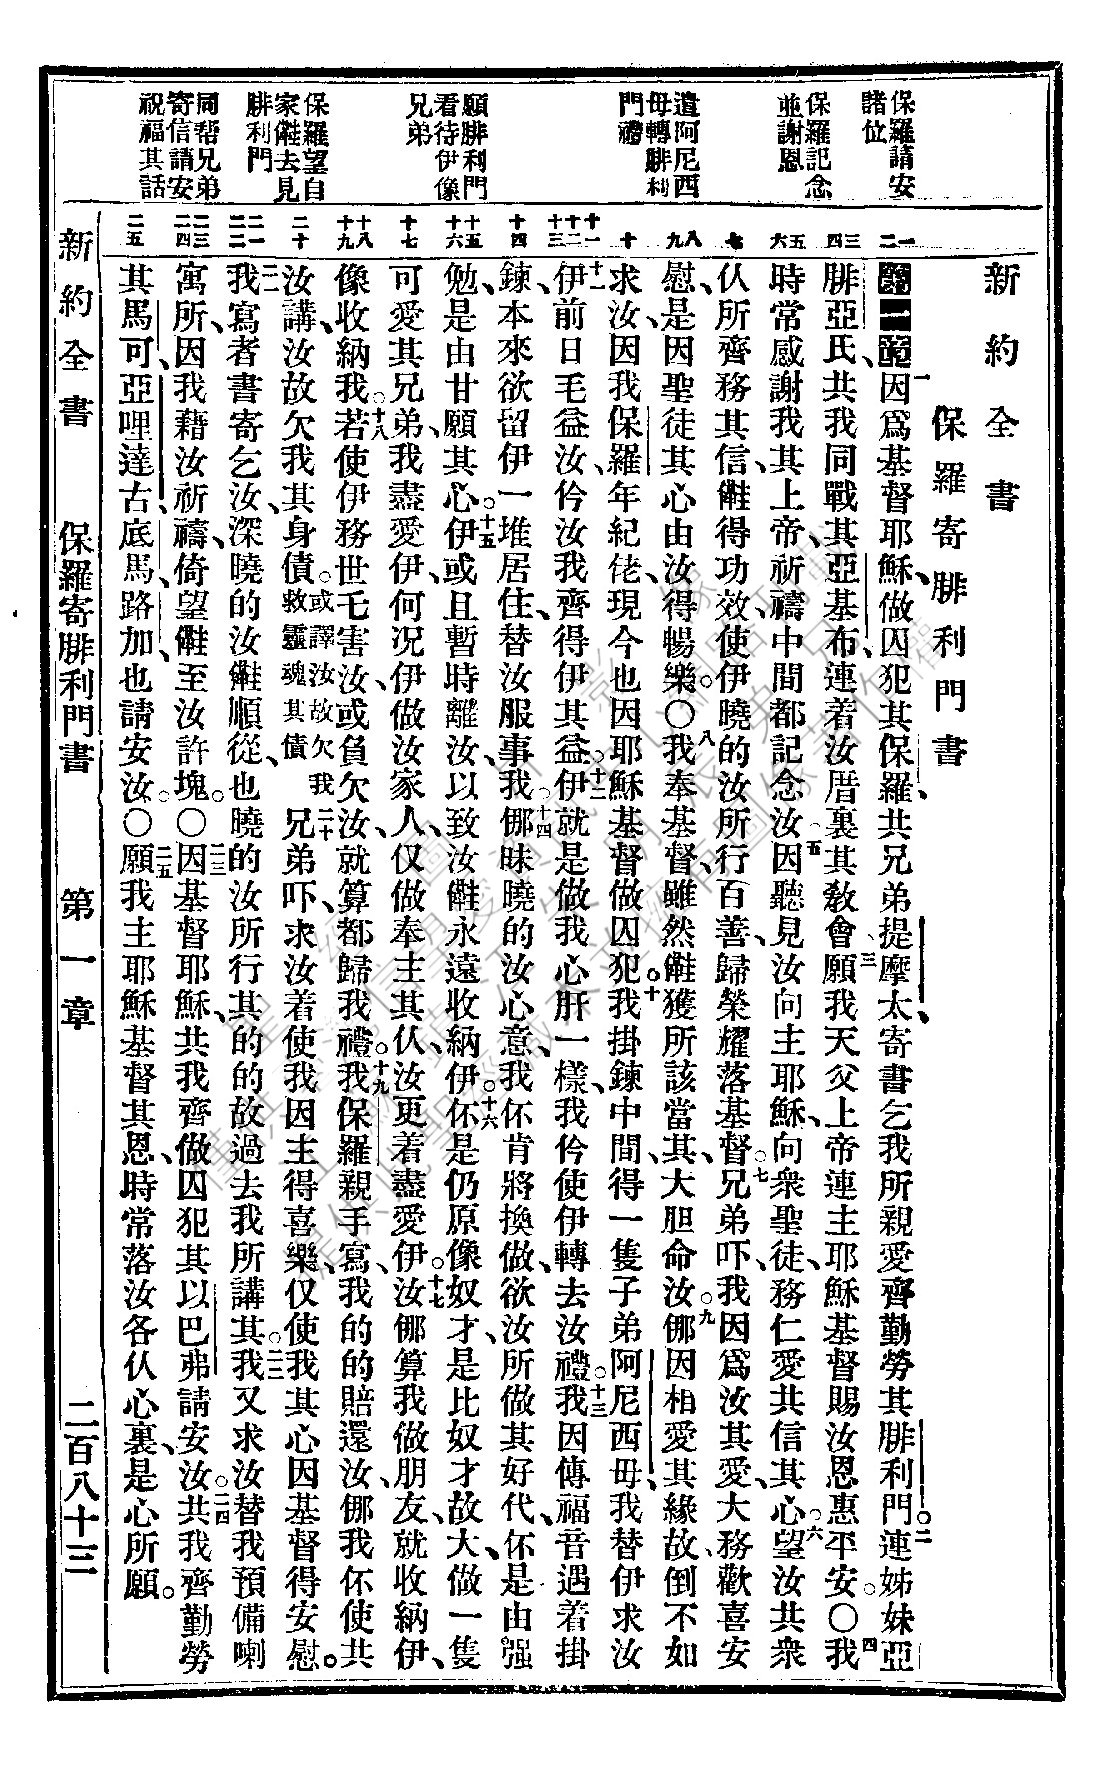 保羅請安
諸位
保羅記念
並謝恩
遣阿尼西
母轉腓利
門禮
願腓利門
看待伊像
兄弟
保羅望自
家㑚去見
腓利門
同帮兄弟
寄信請安
祝福其話
新約全書
保羅寄腓利門書
一二
三四
五六
七
八九
十
十一十二十三
十四
十五十六
十七
十八十九
二十
二一二二
二三二四
二五
第一章一因爲基督耶穌、做囚犯其保羅、共兄弟提摩太、寄書乞我所親愛齊勤勞其腓利門。二連姊妹亞
腓亞氏、共我同戰其亞基布、連着汝厝裏其敎會、三願我天父上帝連主耶穌基督賜汝恩惠平安。○四我
時常感謝我其上帝、祈禱中間都記念汝、五因聽見汝向主耶穌、向衆聖徒、務仁愛共信其心。六望汝共衆
仈所齊務其信、㑚得功效、使伊曉的汝所行百善、歸榮耀落基督。七兄弟吓、我因爲汝其愛、大務歡喜安
慰、是因聖徒其心由汝得暢樂。○八我奉基督、雖然㑚獲所該當其、大胆命汝。九㑚因相愛其緣故、倒不如
求汝、因我保羅年紀𠇲、現今也因耶穌基督做囚犯。十我掛鍊中間、得一隻子弟阿尼西母、我替伊求汝
十一伊前日毛益汝、仱汝我齊得伊其益。十二伊就是做我心肝一樣、我仱使伊轉去汝禮。十三我因傳福音遇着掛
鍊、本來欲留伊一堆居住、替汝服事我。十四㑚昧曉的汝心意、我伓肯將換做、欲汝所做其好代、伓是由强
勉、是由甘願其心。十五伊或且暫時離汝、以致汝㑚永遠收納伊。十六伓是仍原像奴才、是比奴才故大、做一隻
可愛其兄弟、我盡愛伊、何況伊做汝家人、仅做奉主其仈、汝更着盡愛伊。十七汝㑚算我做朋友、就收納伊、
像收納我。十八若使伊務世乇害汝、或負欠汝、就算都歸我禮。十九我保羅親手寫、我的的賠還汝、㑚我伓使共
汝講、汝故欠我、其身債。或譯汝故欠我救靈魂其債二十兄弟吓、求汝着使我因主得喜樂、仅使我其心因基督得安慰。
二一我寫者書寄乞汝、深曉的汝㑚順從、也曉的汝所行其的的故過去我所講其。二二我又求汝替我預備喇
寓所、因我藉汝祈禱、倚望㑚至汝許塊。○二三因基督耶穌、共我齊做囚犯其以巴弗請安汝。二四共我齊勤勞
其馬可、亞哩達古、底馬、路加、也請安汝。○二五願我主耶穌基督其恩、時常落汝各仈心裏、是心所願。
新約全書 保羅寄腓利門書 第一章 二百八十三